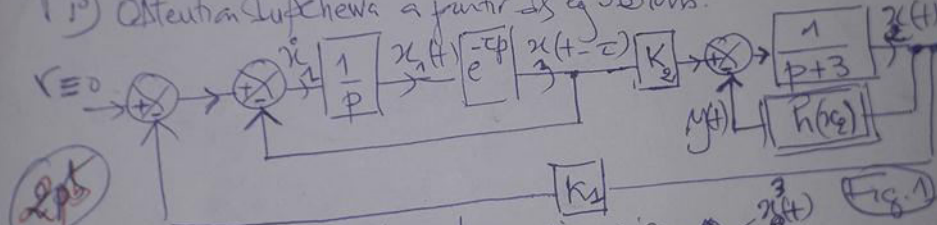 1°) Obtention du schema a partir des equations.
r≡0 + - + - ẋ₁ 1/p x₁(t) e^{-τp} x₁(t-τ) K₂ + - 1/p+3 x₂(t)
y(t) h(x₂)
2pts K₁ Fig.1
x₂³(t)